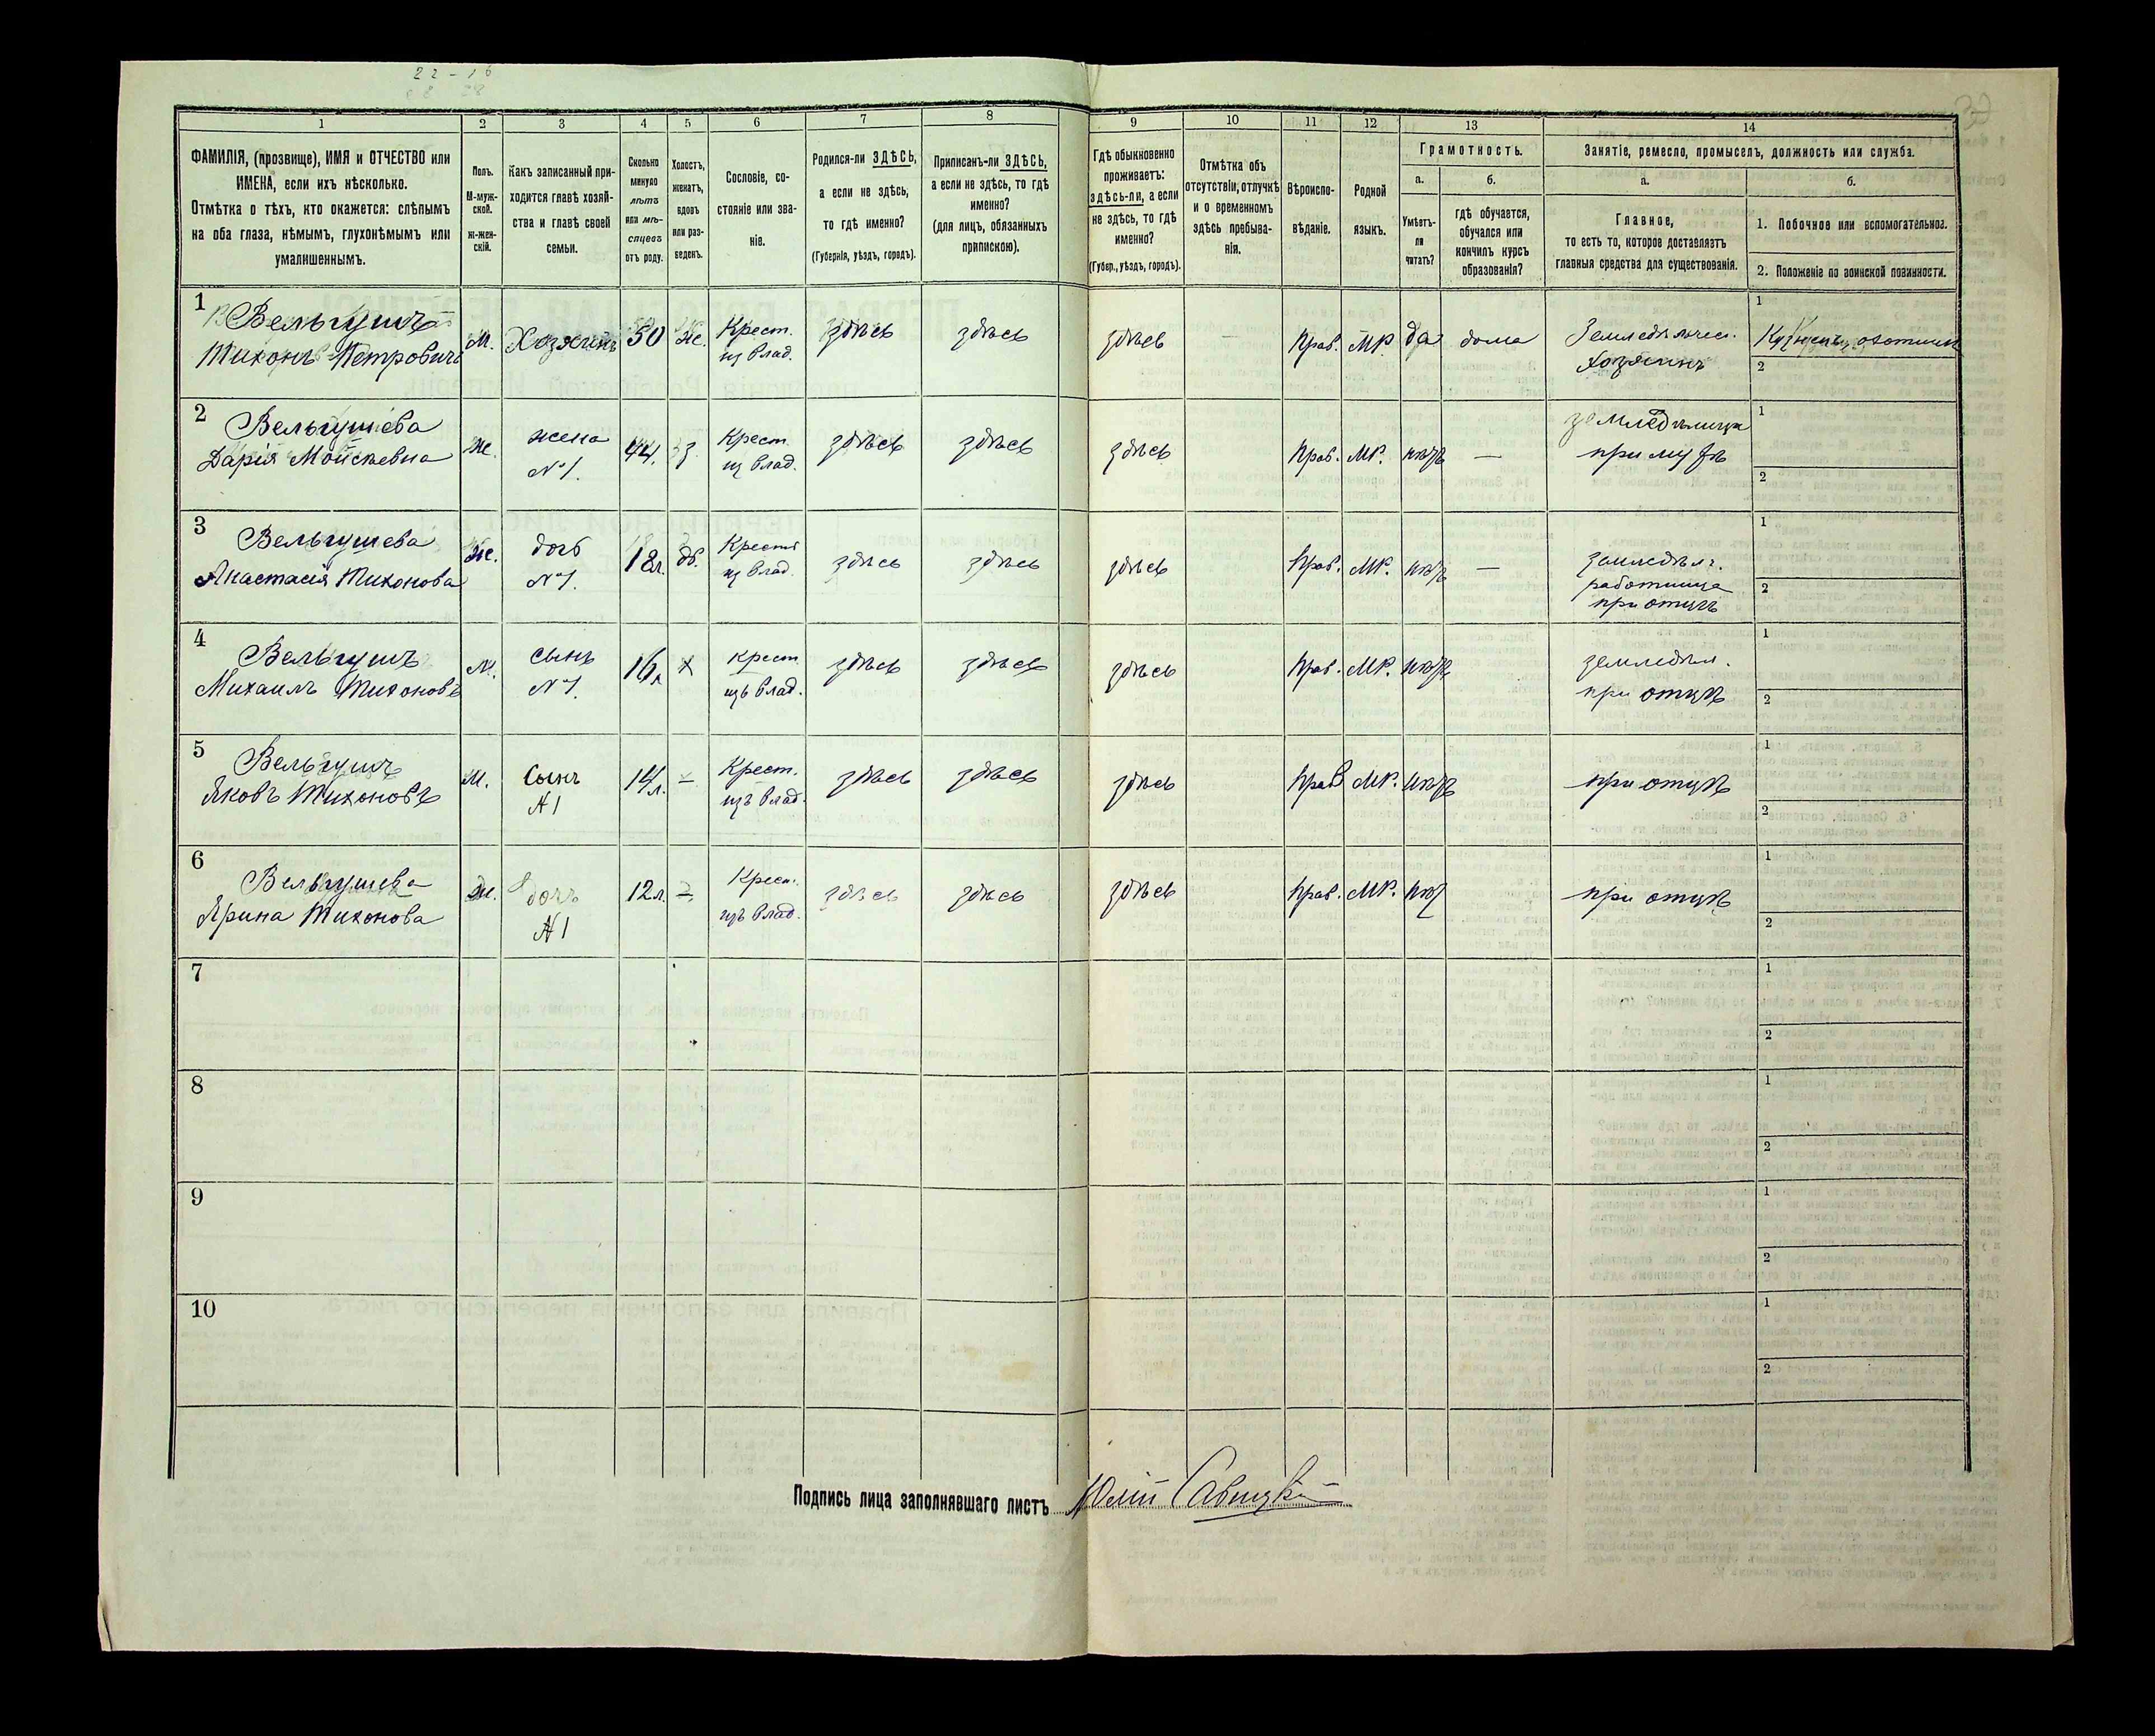 22-16
1 2 3 4 5 6 7 8 9 10 11 12 13 14
ФАМИЛІЯ, (прозвище), ИМЯ и ОТЧЕСТВО или
ИМЕНА, если ихъ нѣсколько.
Отмѣтка о тѣхъ, кто окажется: слѣпымъ
на оба глаза, нѣмымъ, глухонѣмымъ или
умалишеннымъ.
Полъ.
М-муж-
ской.
ж-жен-
скій.
Какъ записанный при-
ходится главѣ хозяй-
ства и главѣ своей
семьи.
Сколько
минуло
лѣтъ
или мѣ-
сяцевъ
отъ роду.
Холостъ,
женатъ,
вдовъ
или раз-
веденъ.
Сословіе, со-
стояніе или зва-
ніе.
Родился-ли ЗДѢСЬ,
а если не здѣсь,
то гдѣ именно?
(Губернія, уѣздъ, городъ).
Приписанъ-ли ЗДѢСЬ,
а если не здѣсь, то гдѣ
именно?
(для лицъ, обязанныхъ
припискою).
Гдѣ обыкновенно
проживаетъ:
здѣсь-ли, а если
не здѣсь, то гдѣ
именно?
(Губер., уѣздъ, городъ).
Отмѣтка объ
отсутствіи, отлучкѣ
и о временномъ
здѣсь пребыва-
нія.
Вѣроиспо-
вѣданіе.
Родной
языкъ.
Грамотность.
а. б.
Умѣетъ-
ли
читать?
гдѣ обучается,
обучался или
кончилъ курсъ
образованія?
Занятіе, ремесло, промыселъ, должность или служба.
а. б.
Главное,
то есть то, которое доставляетъ
главныя средства для существованія.
1. Побочное или вспомогательное.
2. Положеніе по воинской повинности.
1
Вельгушъ
Тихонъ Петровичъ
М. Хозяинъ 50 Ж. Крест.
из влад.
здѣсь здѣсь здѣсь — Прав. МР. да дома Земледѣлич.
хозяинъ
1
2
2
Вельгушева
Дарія Мойсѣевна
Ж. жена
№1.
44. з. Крест.
из влад.
здѣсь здѣсь здѣсь Прав. МР. нѣтъ — землѣдѣлица
при мужѣ
1
2
3
Вельгушева
Анастасія Тихонова
Ж. дочь
№1.
18л. дѣ. Крест.
из влад.
здѣсь здѣсь здѣсь Прав. МР. нѣтъ — земледѣл.
работница
при отцѣ
1
2
4
Вельгушъ
Михаилъ Тихоновъ
М. сынъ
№1.
16л х Крест.
изъ влад.
здѣсь здѣсь здѣсь Прав. МР. нѣтъ земледѣл.
при отцѣ
1
2
5
Вельгушъ
Яковъ Тихоновъ
М. Сынъ
№1
14л. — Крест.
изъ влад.
здѣсь здѣсь здѣсь Прав МР. нѣтъ при отцѣ
1
2
6
Вельгушева
Ярина Тихонова
Ж. дочъ
№1
12л. — Крест.
изъ влад.
здѣсь здѣсь здѣсь Прав. МР. нѣт при отцѣ
1
2
7
1
2
8
1
2
9
1
2
10
1
2
Подпись лица заполнявшаго листъ Юлій Савицкій